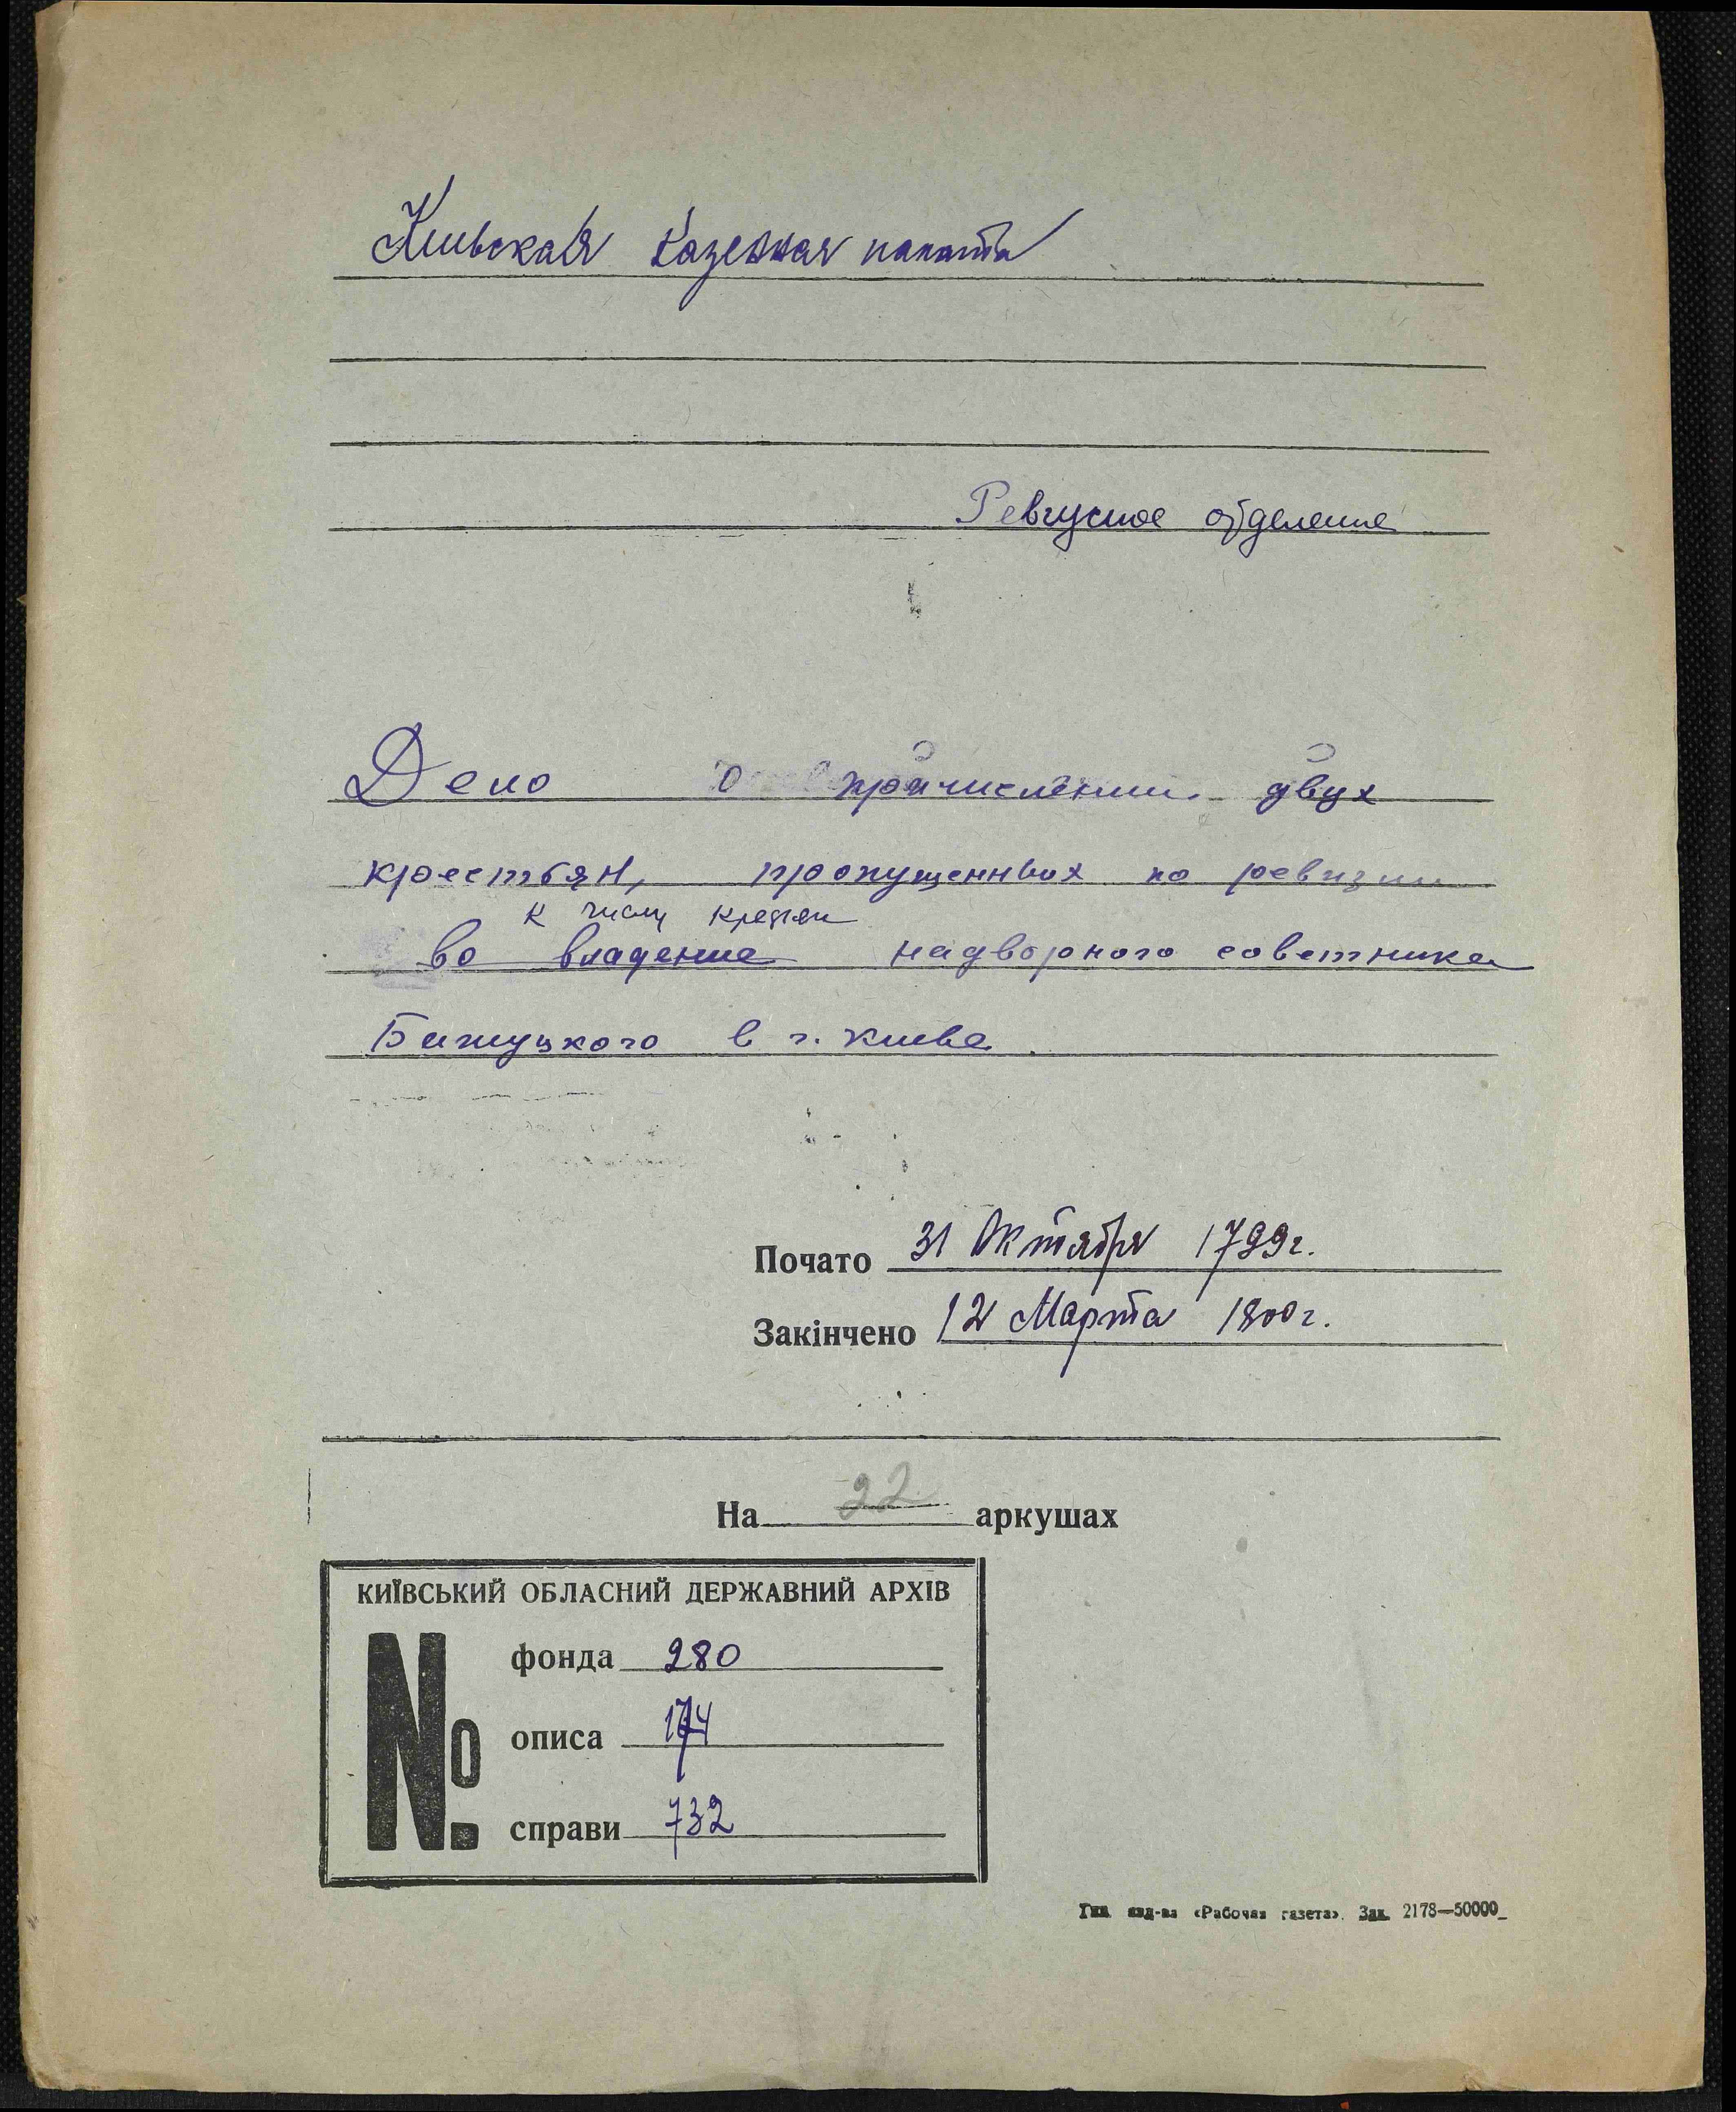 Киевская казенная палата
Ревизское отделение
Дело о причислении двух
крестьян, пропущенных по ревизии
к числу крестьян
во владение надворного советника
в г. Киеве
Почато 31 Октября 1799 г.
Закінчено 12 Марта 1800 г.
На 22 аркушах
КИЇВСЬКИЙ ОБЛАСНИЙ ДЕРЖАВНИЙ АРХІВ
№
фонда 280
описа 174
справи 732
Тип. изд-ва «Рабочая газета». Зак. 2178—50000